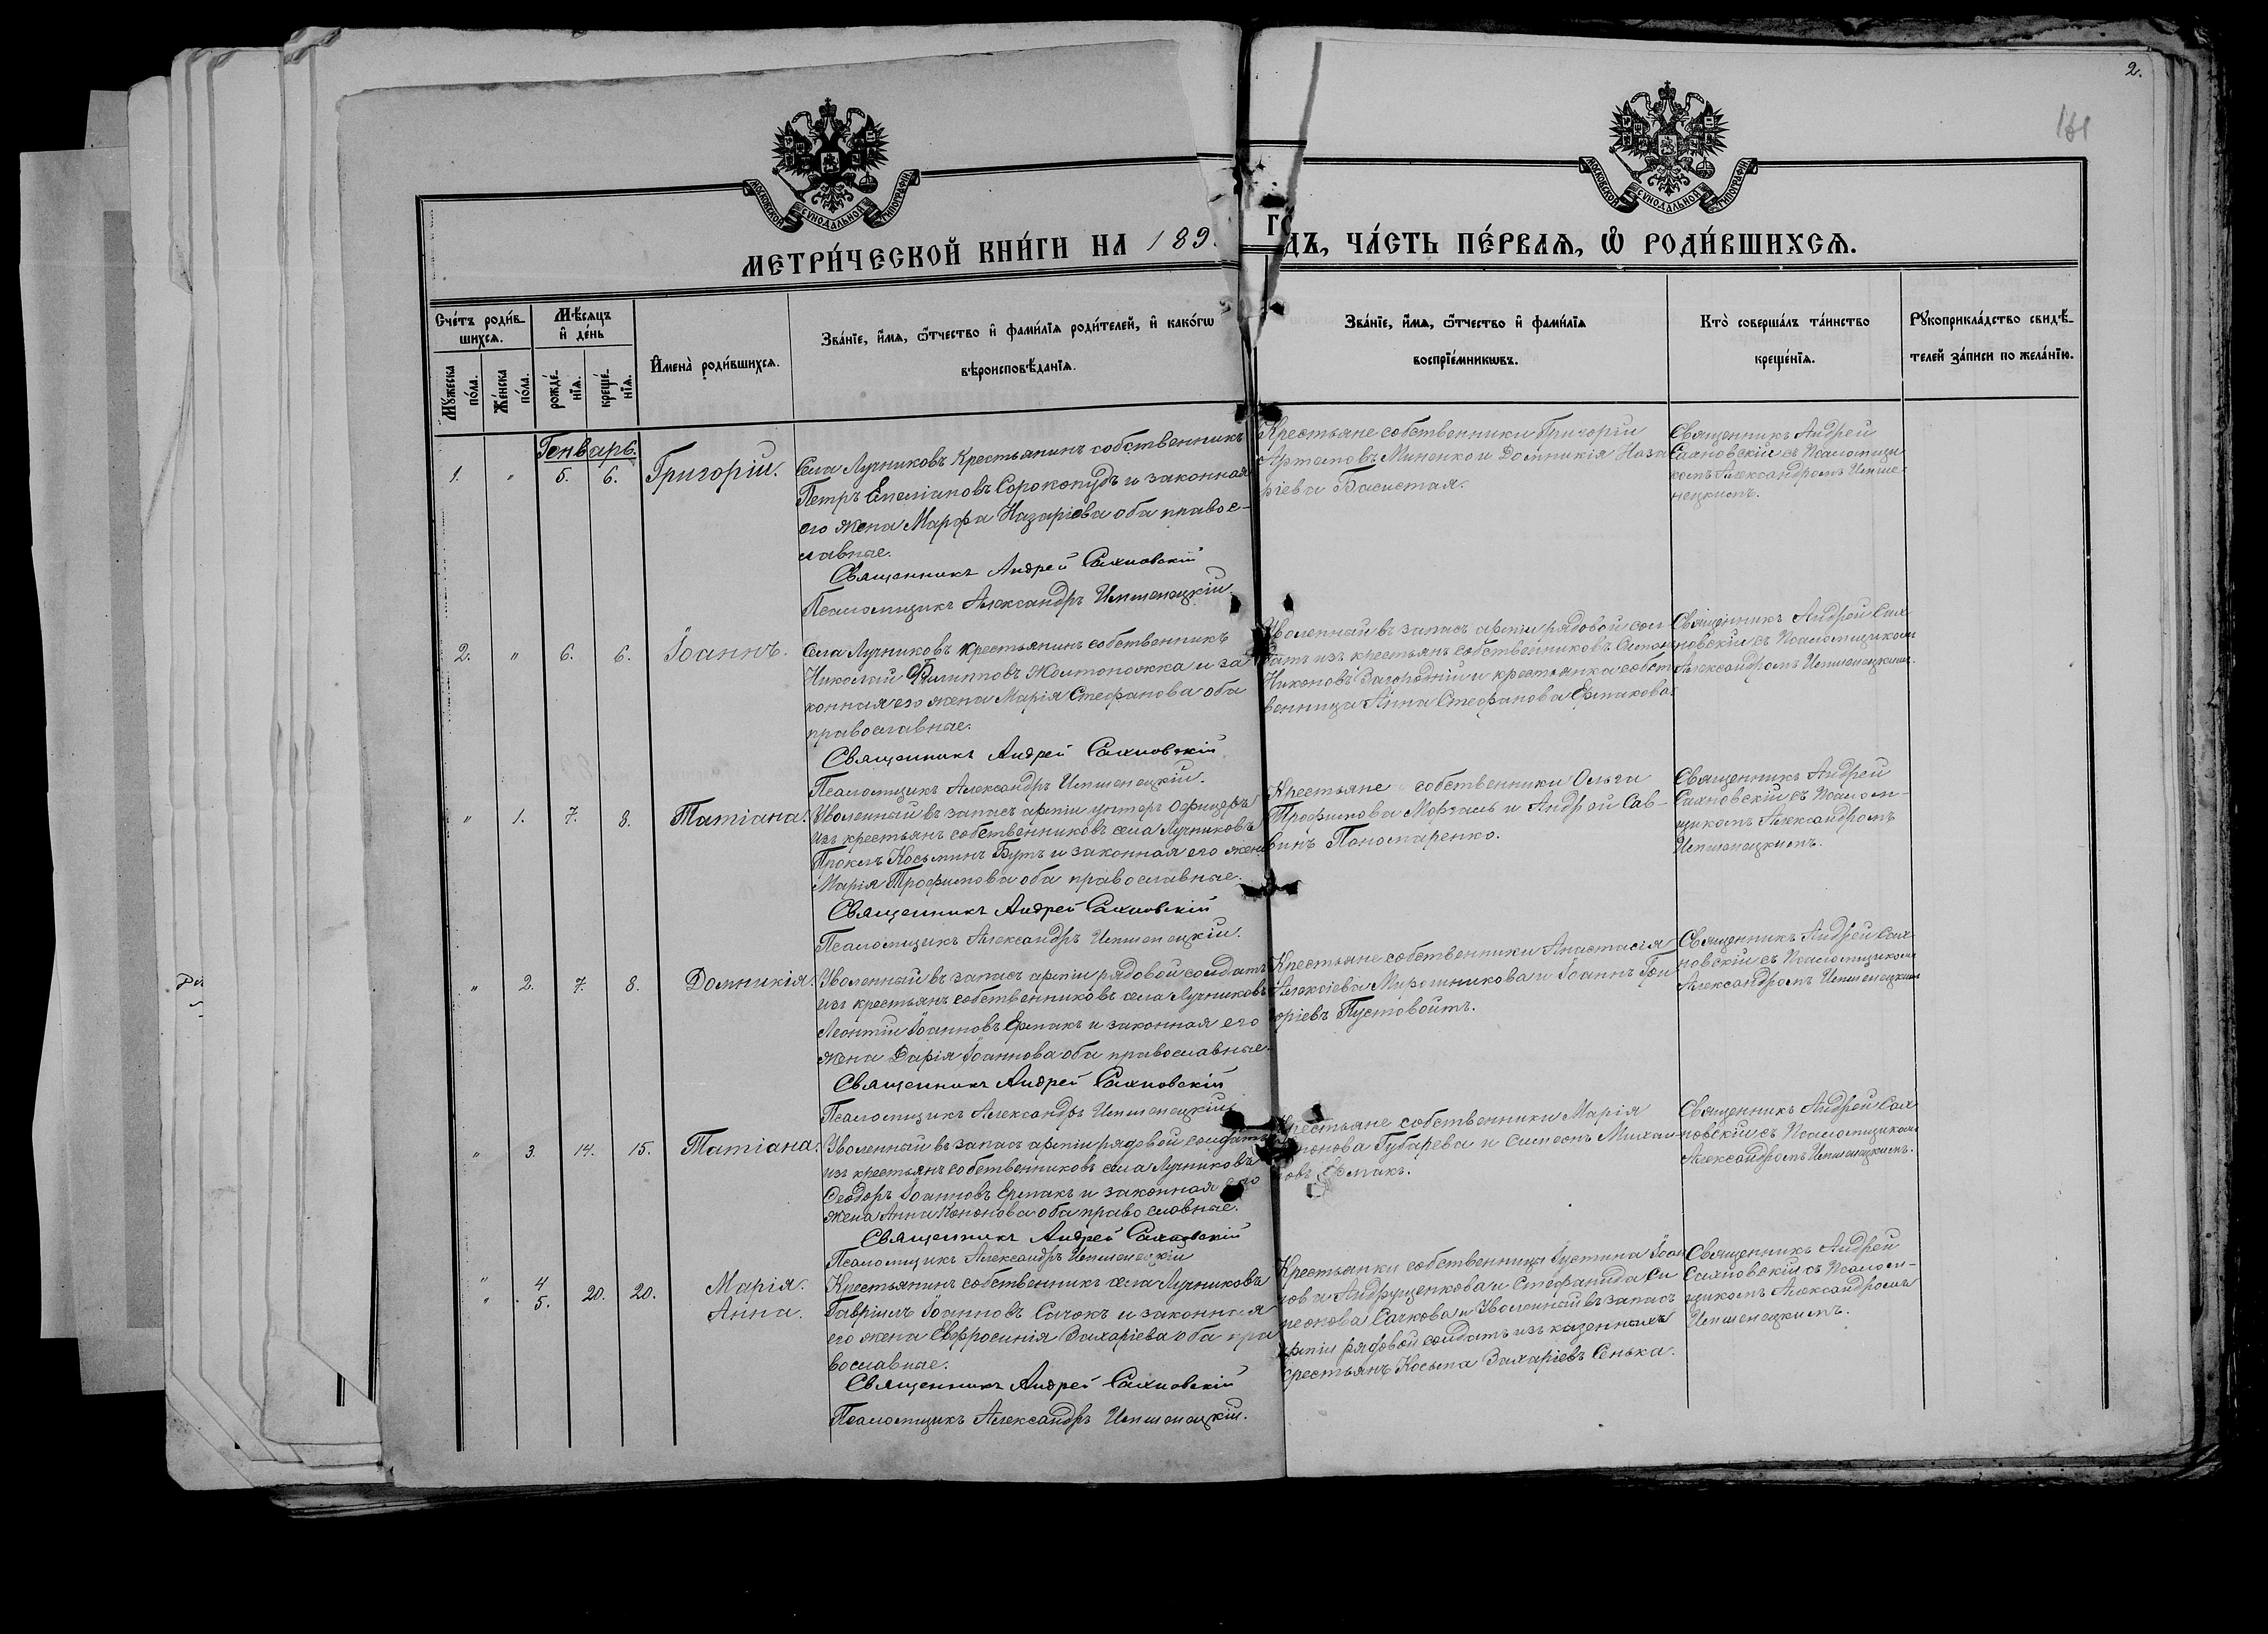 2.
МОСКОВСКОЙ СѴНОДАЛЬНОЙ ТИПОГРАФІИ
МОСКОВСКОЙ СѴНОДАЛЬНОЙ ТИПОГРАФІИ
МЕТРИ́ЧЕСКОЙ КНИ́ГИ НА 189
ГО
ДЪ, ЧА́СТЬ ПЕ́РВАѦ, Ѡ РОДИ́ВШИХСѦ.
Сче́тъ роди́в-
шихсѧ.
Мꙋжеска по́ла.
Же́нска по́ла.
Мѣ́сѧцъ и҆ де́нь
рожде́-нїѧ.
креще́-нїѧ.
И҆мена̀ роди́вшихсѧ.
Зва́нїе, и҆́мѧ, ѻ҆́тчество и҆ фами́лїѧ роди́телей, и҆ како́гѡ
вѣроисповѣ́данїѧ.
Зва́нїе, и҆́мѧ, ѻ҆́тчество и҆ фами́лїѧ
воспрїе́мникѡвъ.
Кто̀ соверша́лъ та́инство
креще́нїѧ.
Рꙋкоприкла́дство свидѣ́-
телей за́писи по жела́нїю.
Генварь.
1. " 5. 6. Григорій.
Села Лучниковъ Крестьянинъ собственникъ
Петръ Емеліановъ Сорокопудъ и законная
его жена Марфа Назаріева оба правос-
лавные.
Священникъ Андрей Сахновскій
Псаломщикъ Александръ Ипшенецкій.
Крестьяне собственники Григорій
Артемовъ Миненко и Домникія Наза
ріева Басистая.
Священникъ Андрей
Сахновскій съ Псаломщи
комъ Александромъ Ипше-
нецкимъ.
2. " 6. 6. Іоаннъ.
Села Лучниковъ крестьянинъ собственникъ
Николай Филипповъ Желтоножка и за
конная его жена Марія Стефанова оба
православные.
Священникъ Андрей Сахновскій
Псаломщикъ Александръ Ипшенецкій.
Уволенный въ запасъ арміи рядовой сол
датъ изъ крестьянъ собственниковъ Симеон
Никоновъ Загородній и крестьянка собст
венница Анна Стефанова Ермакова
Священникъ Андрей Сах
новскій съ Псаломщикомъ
Александромъ Ипшенецкимъ.
" 1. 7. 8. Татіана.
Уволенный въ запасъ арміи унтеръ офицеръ
изъ крестьянъ собственниковъ села Лучниковъ
Проклъ Косьминъ Бутъ и законная его жена
Марія Трофимова оба православные.
Священникъ Андрей Сахновскій
Псаломщикъ Александръ Ипшенецкій.
Крестьяне собственники Ольга
Трофимова Моргаль и Андрей Сав-
винъ Пономаренко.
Священникъ Андрей
Сахновскій съ Псалом-
щикомъ Александромъ
Ипшенецкимъ.
" 2. 7. 8. Домникія.
Уволенный въ запасъ арміи рядовой солдатъ
изъ крестьянъ собственниковъ села Лучниковъ
Леонтій Іоанновъ Ермакъ и законная его
жена Дарія Іоаннова оба православные.
Священникъ Андрей Сахновскій
Псаломщикъ Александръ Ипшенецкій
Крестьяне собственники Анастасія
Алексіева Мирошникова и Іоаннъ Гри
горіевъ Пустовойтъ.
Священникъ Андрей Сах-
новскій съ Псаломщикомъ
Александромъ Ипшенецкимъ
" 3. 14. 15. Татіана.
Уволенный въ запасъ арміи рядовой солдатъ
изъ крестьянъ собственниковъ села Лучниковъ
Ѳеодоръ Іоанновъ Ермакъ и законная его
жена Анна Кононова оба православные.
Священникъ Андрей Сахновскій
Псаломщикъ Александръ Ипшенецкій
Крестьяне собственники Марія
Губарева и Симеонъ Михаи
ловъ Ермакъ.
Священникъ Андрей Сах
новскій съ Псаломщикомъ
Александромъ Ипшенецкимъ.
" 4 Марія.
" 5. 20. 20. Анна.
Крестьянинъ собственникъ села Лучниковъ
Гавріилъ Іоанновъ Сачокъ и законная
его жена Евфросинія Захаріева оба пра
вославные.
Священникъ Андрей Сахновскій
Псаломщикъ Александръ Ипшенецкій.
Крестьянки собственницы Іустина Іоан
нова Андрущенкова и Стефанида Си
меонова Сачкова и Уволенный въ запасъ
арміи рядовой солдатъ изъ казенныхъ
крестьянъ Косьма Захаріевъ Сенька.
Священникъ Андрей
Сахновскій съ Псалом-
щикомъ Александромъ
Ипшенецкимъ.